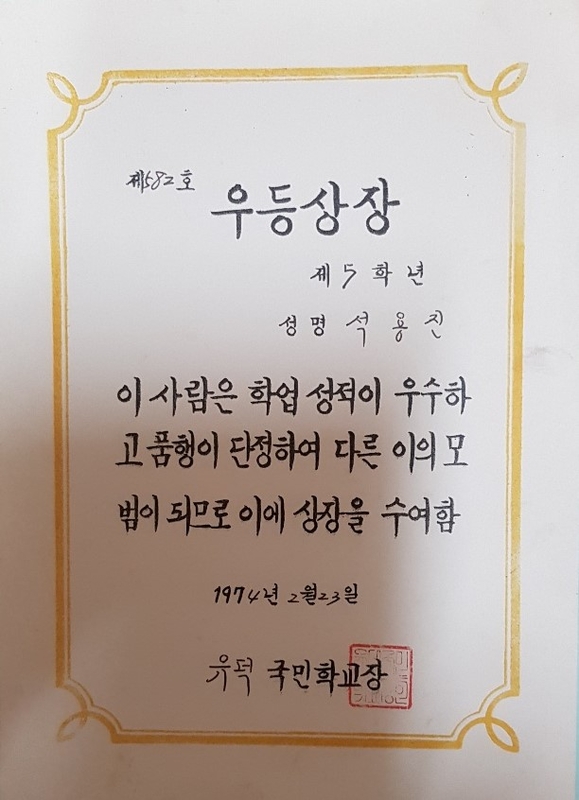 제582호
우등상장
제5학년
성명 석용진
이 사람은 학업 성적이 우수하
고 품행이 단정하여 다른 이의 모
범이 되므로 이에 상장을 수여함
1974년 2월23일
유덕 국민학교장